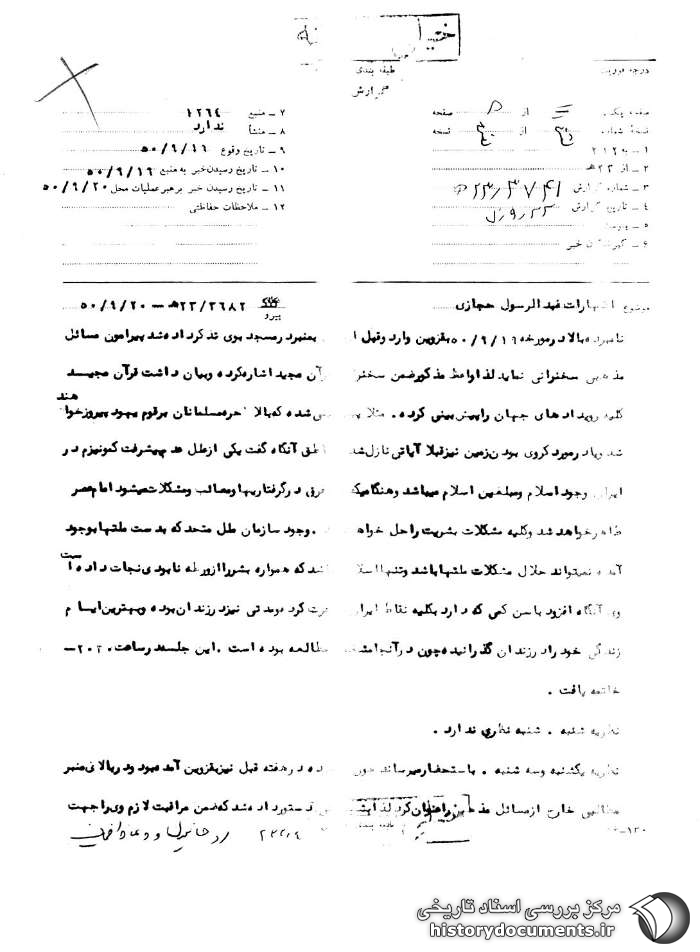 درجه فوریت
طبقه بندی
گزارش
صفحه یک از صفحه
نسخه شماره از نسخه
۱ ـ به ۲۱۲
۲ ـ از ۲۲ هـ
۳ ـ شماره گزارش
۴ ـ تاریخ گزارش
۵ ـ پیوست
۶ ـ گیرندگان خبر
۷ ـ منبع ۱۲۶۴
۸ ـ منشأ ندارد
۹ ـ تاریخ وقوع ۵۰/۹/۱۶
۱۰ ـ تاریخ رسیدن خبر به منبع ۵۰/۹/۱۶
۱۱ ـ تاریخ رسیدن خبر برهبر عملیات محل ۵۰/۹/۲۰
۱۲ ـ ملاحظات حفاظتی
موضوع اظهارات عبدالرسول حجازی
پیرو ۲۲/۳۶۸۲هـ ـ ۵۰/۹/۲۰
نامبرده بالا در مورخه ۵۰/۹/۱۶ بقزوین وارد و قبل از بمنبر در مسجد بوی تذکر داده شد پیرامون مسائل
مذهبی سخنرانی نماید لذا واعظ مذکور ضمن سخنرانی قرآن مجید اشاره کرده و بیان داشت قرآن مجید
کلیه رویدادهای جهان را پیش بینی کرده . مثلا شده که بالاخره مسلمانان بر قوم یهود پیروز خواهند
شد و یا در مورد کروی بودن زمین نیز قبلا آیاتی نازل شده ناطق آنگاه گفت یکی از علل عدم پیشرفت کمونیزم در
ایران وجود اسلام و مبلغین اسلام میباشد و هنگامیکه غرق در گرفتاریها و مصائب و مشکلات میشود امام عصر
ظاهر خواهد شد و کلیه مشکلات بشریت را حل خواهد . وجود سازمان ملل متحد که بدست ملتها بوجود
آمده نمیتواند حلال مشکلات ملتها باشد و تنها اسلام باشد که همواره بشر را از ورطه نابودی نجات داده است
وی آنگاه افزود با سن کمی که دارد بکلیه نقاط ایران کرده و مدتی نیز در زندان بوده و بهترین ایام
زندگی خود را در زندان گذرانیده چون در آنجا مشغول مطالعه بوده است . این جلسه در ساعت ۲۰۲۰ـ
خاتمه یافت .
نظریه شنبه . شنبه نظری ندارد .
نظریه یکشنبه و سه شنبه . باستحضار میرساند چون در هفته قبل نیز بقزوین آمده بود و در بالای منبر
مطالبی خارج از مسائل مذهبی را عنوان کرد لذا دستور داده شد که ضمن مراقبت لازم وی را جهت
طبقه بندی
مرکز بررسی اسناد تاریخی
historydocuments.ir